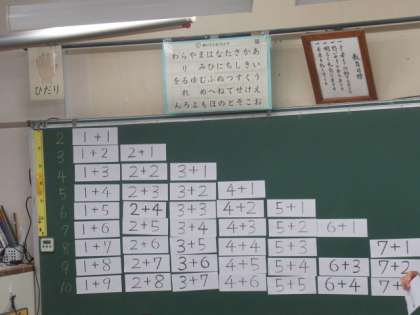 ひだり
わらやまはなたさかあ
り みひにちしきい
をるゆむふぬつすくう
れ めへねてせけえ
んろよもほのとそこお
教育目標
2 1+1
3 1+2 2+1
4 1+3 2+2 3+1
5 1+4 2+3 3+2 4+1
6 1+5 2+4 3+3 4+2 5+1
7 1+6 2+5 3+4 4+3 5+2 6+1
8 1+7 2+6 3+5 4+4 5+3 7+1
9 1+8 2+7 3+6 4+5 5+4 6+3 7+2
10 1+9 2+8 3+7 4+6 5+5 6+4 7+